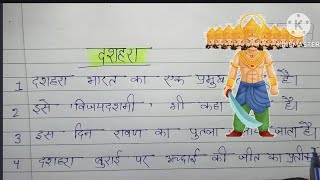 दशहरा
1 दशहरा भारत का एक प्रमुख है।
2 इसे 'विजयदशमी' भी कहा है।
3 इस दिन रावण का पुतला जाता है।
4 दशहरा बुराई पर अच्छाई की जीत का प्रतीक